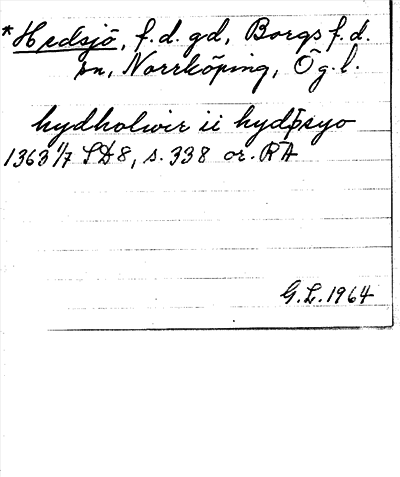 *Hedsjö, f.d. gd, Borgs f.d.
sn, Norrköping, Ög. l.
hydholwir ii hydþsyo
1363 1/7 SD 8, s. 338 or. RA
G.L. 1964